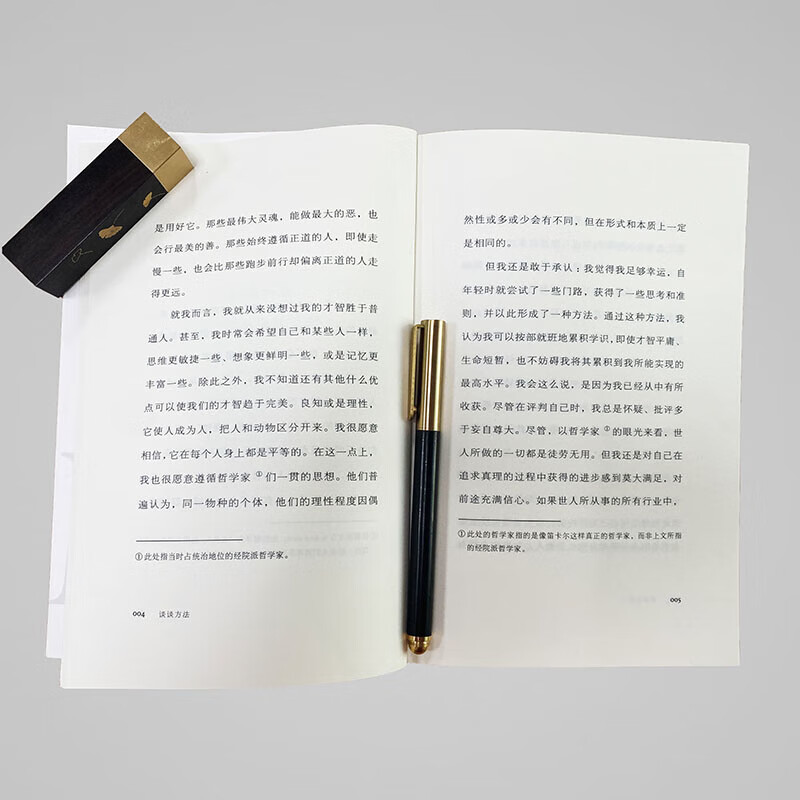 是用好它。那些最伟大灵魂，能做最大的恶，也
会行最美的善。那些始终遵循正道的人，即使走
慢一些，也会比那些跑步前行却偏离正道的人走
得更远。
就我而言，我就从来没想过我的才智胜于普
通人。甚至，我时常会希望自己和某些人一样，
思维更敏捷一些、想象更鲜明一些，或是记忆更
丰富一些。除此之外，我不知道还有其他什么优
点可以使我们的才智趋于完美。良知或是理性，
它使人成为人，把人和动物区分开来。我很愿意
相信，它在每个人身上都是平等的。在这一点上，
我也很愿意遵循哲学家①们一贯的思想。他们普
遍认为，同一物种的个体，他们的理性程度因偶
①此处指当时占统治地位的经院派哲学家。
004 谈谈方法
然性或多或少会有不同，但在形式和本质上一定
是相同的。
但我还是敢于承认：我觉得我足够幸运，自
年轻时就尝试了一些门路，获得了一些思考和准
则，并以此形成了一种方法。通过这种方法，我
认为我可以按部就班地累积学识，即使才智平庸、
生命短暂，也不妨碍我将其累积到我所能实现的
最高水平。我会这么说，是因为我已经从中有所
收获。尽管在评判自己时，我总是怀疑、批评多
于妄自尊大。尽管，以哲学家①的眼光来看，世
人所做的一切都是徒劳无用。但我还是对自己在
追求真理的过程中获得的进步感到莫大满足，对
前途充满信心。如果世人所从事的所有行业中，
①此处的哲学家指的是像笛卡尔这样真正的哲学家，而非上文所指
的经院派哲学家。
005